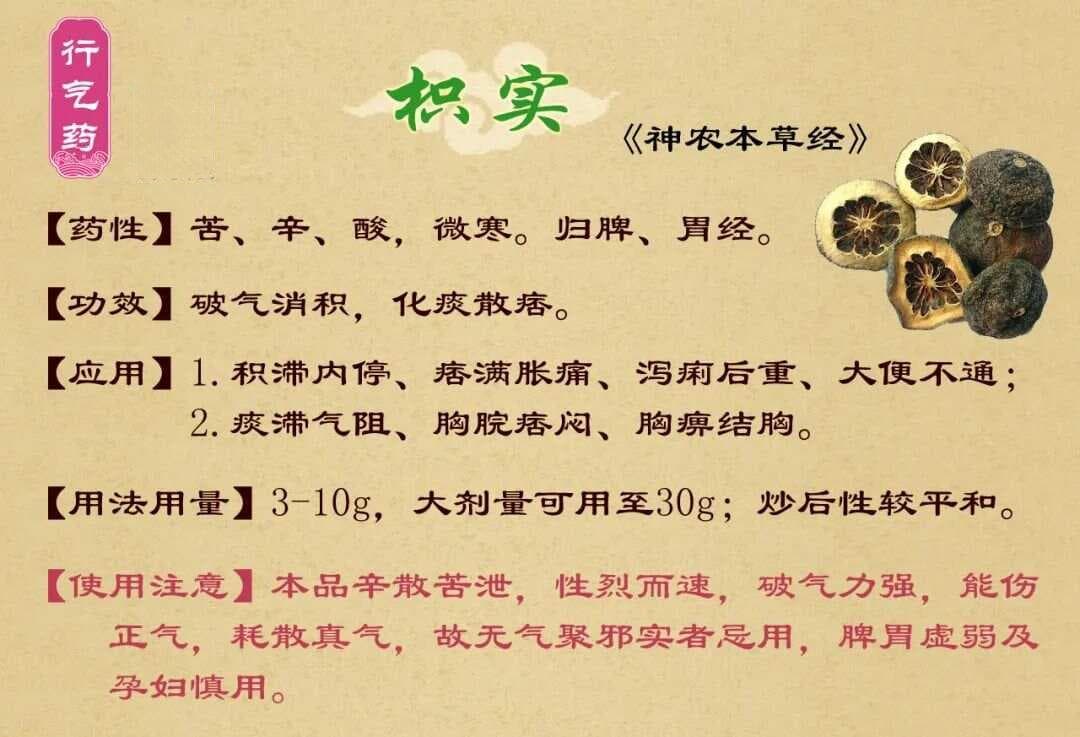 行气药
枳实
《神农本草经》
【药性】苦、辛、酸，微寒。归脾、胃经。
【功效】破气消积，化痰散痞。
【应用】1.积滞内停、痞满胀痛、泻痢后重、大便不通；
2.痰滞气阻、胸脘痞闷、胸痹结胸。
【用法用量】3-10g，大剂量可用至30g；炒后性较平和。
【使用注意】本品辛散苦泄，性烈而速，破气力强，能伤
正气，耗散真气，故无气聚邪实者忌用，脾胃虚弱及
孕妇慎用。